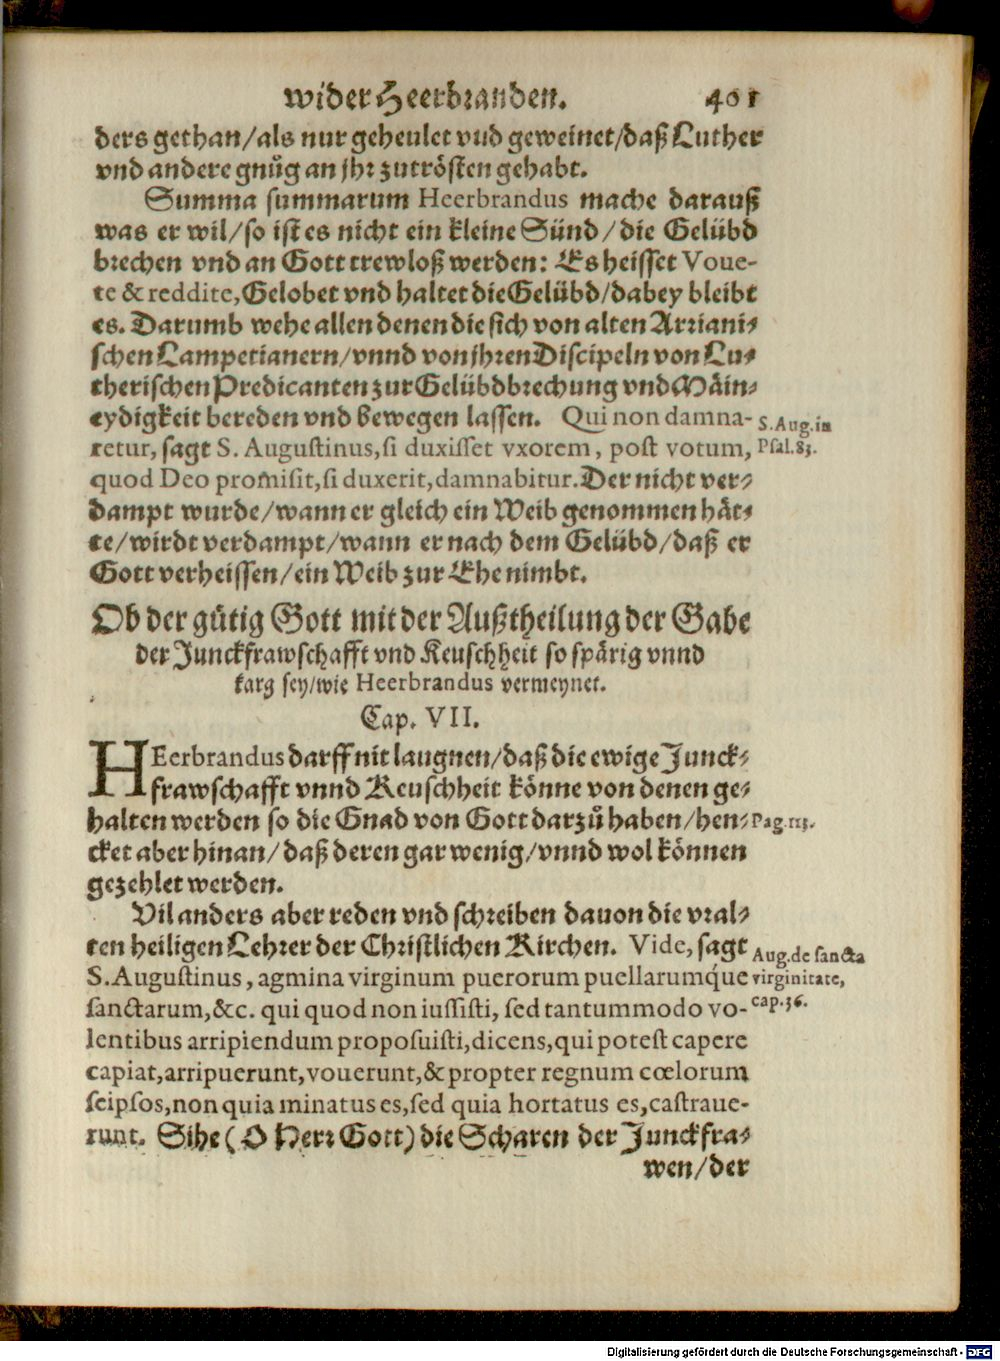 wider Heerbranden. 401
ders gethan/als nur geheulet vnd geweinet/daß Luther
vnd andere gnůg an jhr zutrösten gehabt.
Summa summarum Heerbrandus mache darauß
was er wil/so ist es nicht ein kleine Sünd/die Gelübd
brechen vnd an Gott trewloß werden: Es heisset Voue-
te & reddite, Gelobet vnd haltet die Gelübd/dabey bleibt
es. Darumb wehe allen denen die sich von alten Arriani-
schen Lampetianern/vnnd von jhren Discipeln von Lu-
therischen Predicanten zur Gelübdbrechung vnd Mäin-
eydigkeit bereden vnd bewegen lassen. Qui non damna-
retur, sagt S. Augustinus, si duxisset vxorem, post votum,
quod Deo promisit, si duxerit, damnabitur. Der nicht ver-
dampt wurde/wann er gleich ein Weib genommen hät-
te/wirdt verdampt/wann er nach dem Gelübd/daß er
Gott verheissen/ein Weib zur Ehe nimbt.
S. Aug. in
Psal. 83.
Ob der gütig Gott mit der Außtheilung der Gabe
der Junckfrawschafft vnd Keuschheit so spärig vnnd
karg sey/wie Heerbrandus vermeynet.
Cap. VII.
HEerbrandus darff nit laugnen/daß die ewige Junck-
frawschafft vnnd Keuschheit könne von denen ge-
halten werden so die Gnad von Gott darzů haben/hen-
cket aber hinan/daß deren gar wenig/vnnd wol können
gezehlet werden.
Pag. 113.
Vil anders aber reden vnd schreiben dauon die vral-
ten heiligen Lehrer der Christlichen Kirchen. Vide, sagt
S. Augustinus, agmina virginum puerorum puellarumq́ue
sanctarum, &c. qui quod non iussisti, sed tantummodo vo-
lentibus arripiendum proposuisti, dicens, qui potest capere
capiat, arripuerunt, vouerunt, & propter regnum cœlorum
seipsos, non quia minatus es, sed quia hortatus es, castraue-
runt. Sihe (O Herr Gott) die Scharen der Junckfra-
wen/der
Aug. de sancta
virginitate,
cap. 36.
Digitalisierung gefördert durch die Deutsche Forschungsgemeinschaft - DFG